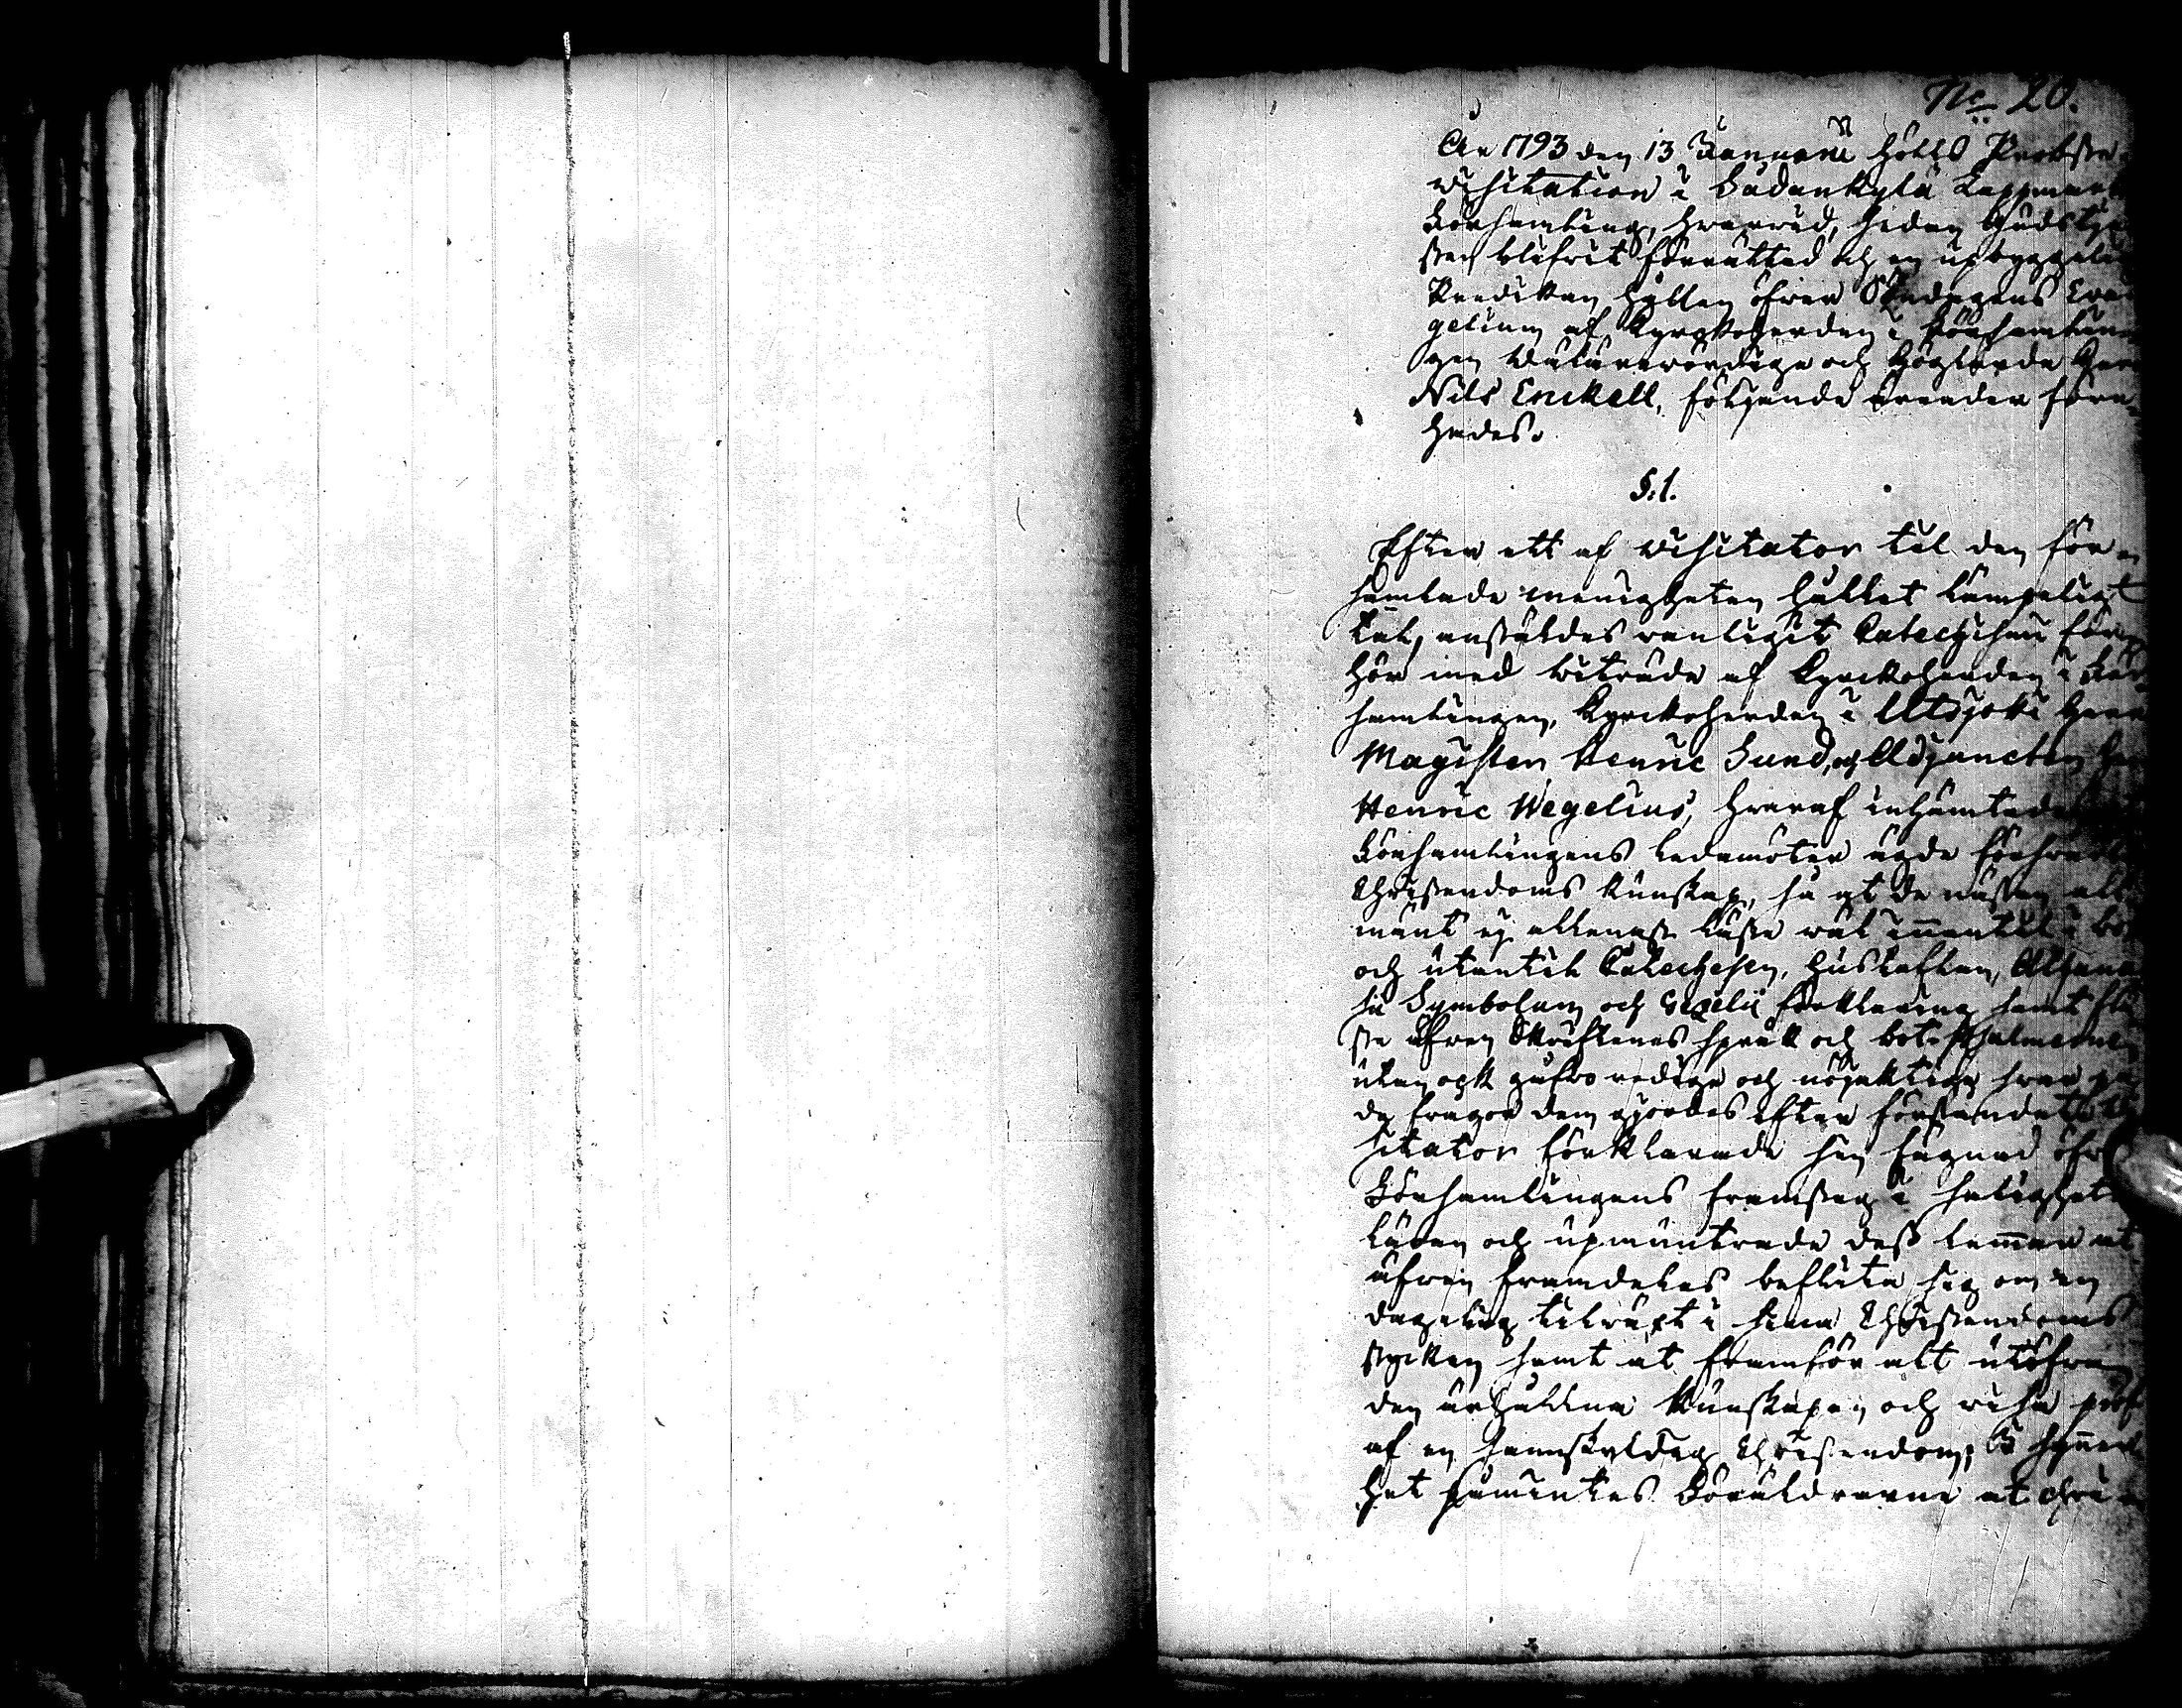 No 20.
År 1793 den 13 Januarii hölts Probste
visitation i Sådankylä Lappmarks
Församling, hwarvid, sedan Gudstje
sten blifvit förrättad och en upbyggelig
Predikan hållen öfver Söndagens Evan
gelium af Kyrkoherden i Församlin
gen Wälärewördige och Höglärde Herr
Nils Enckell, följande ärender före
hades.
§.1.
Efter ett af Visitator til den för
samlade menigheten hållet lämpeligt
tal, anstäldes vanligit Catechisme för
hör med biträde af Kyrckoherden i För
samlingen, Kyrckoherden i Utsjoki Herr
Magister Henric Sund, och Adjuncten Herr
Henric Wegelius, hvaraf inhämtades
Församlingens ledamöter ägde försvarlig
Christendoms kunskap, så at de nästan al
mänt ej allenast läste wäl innantil i bok
och utantil Catechesen, Hustaflan, Athana
sii Symbolum och Gezelii förklaring samt fle
ste äfven Skriftenes språk och bot-Psalmerne
utan ock gåfvo redige och nöjaktige svar på
de frågor dem gjordes efter förståndet. Vi
sitator förklarade sin fägnad öfver
Församlingens framsteg i salighets
läran och upmuntrade dess lemmar at
äfven framdeles beflita sig om en
dagelig tilväxt i sina Christendoms
stycken samt at framför alt utöfva
den ärhållna kunskapen och visa prof
af en sannskyldig Christendom; I synner
het påmintes Föräldrarne at